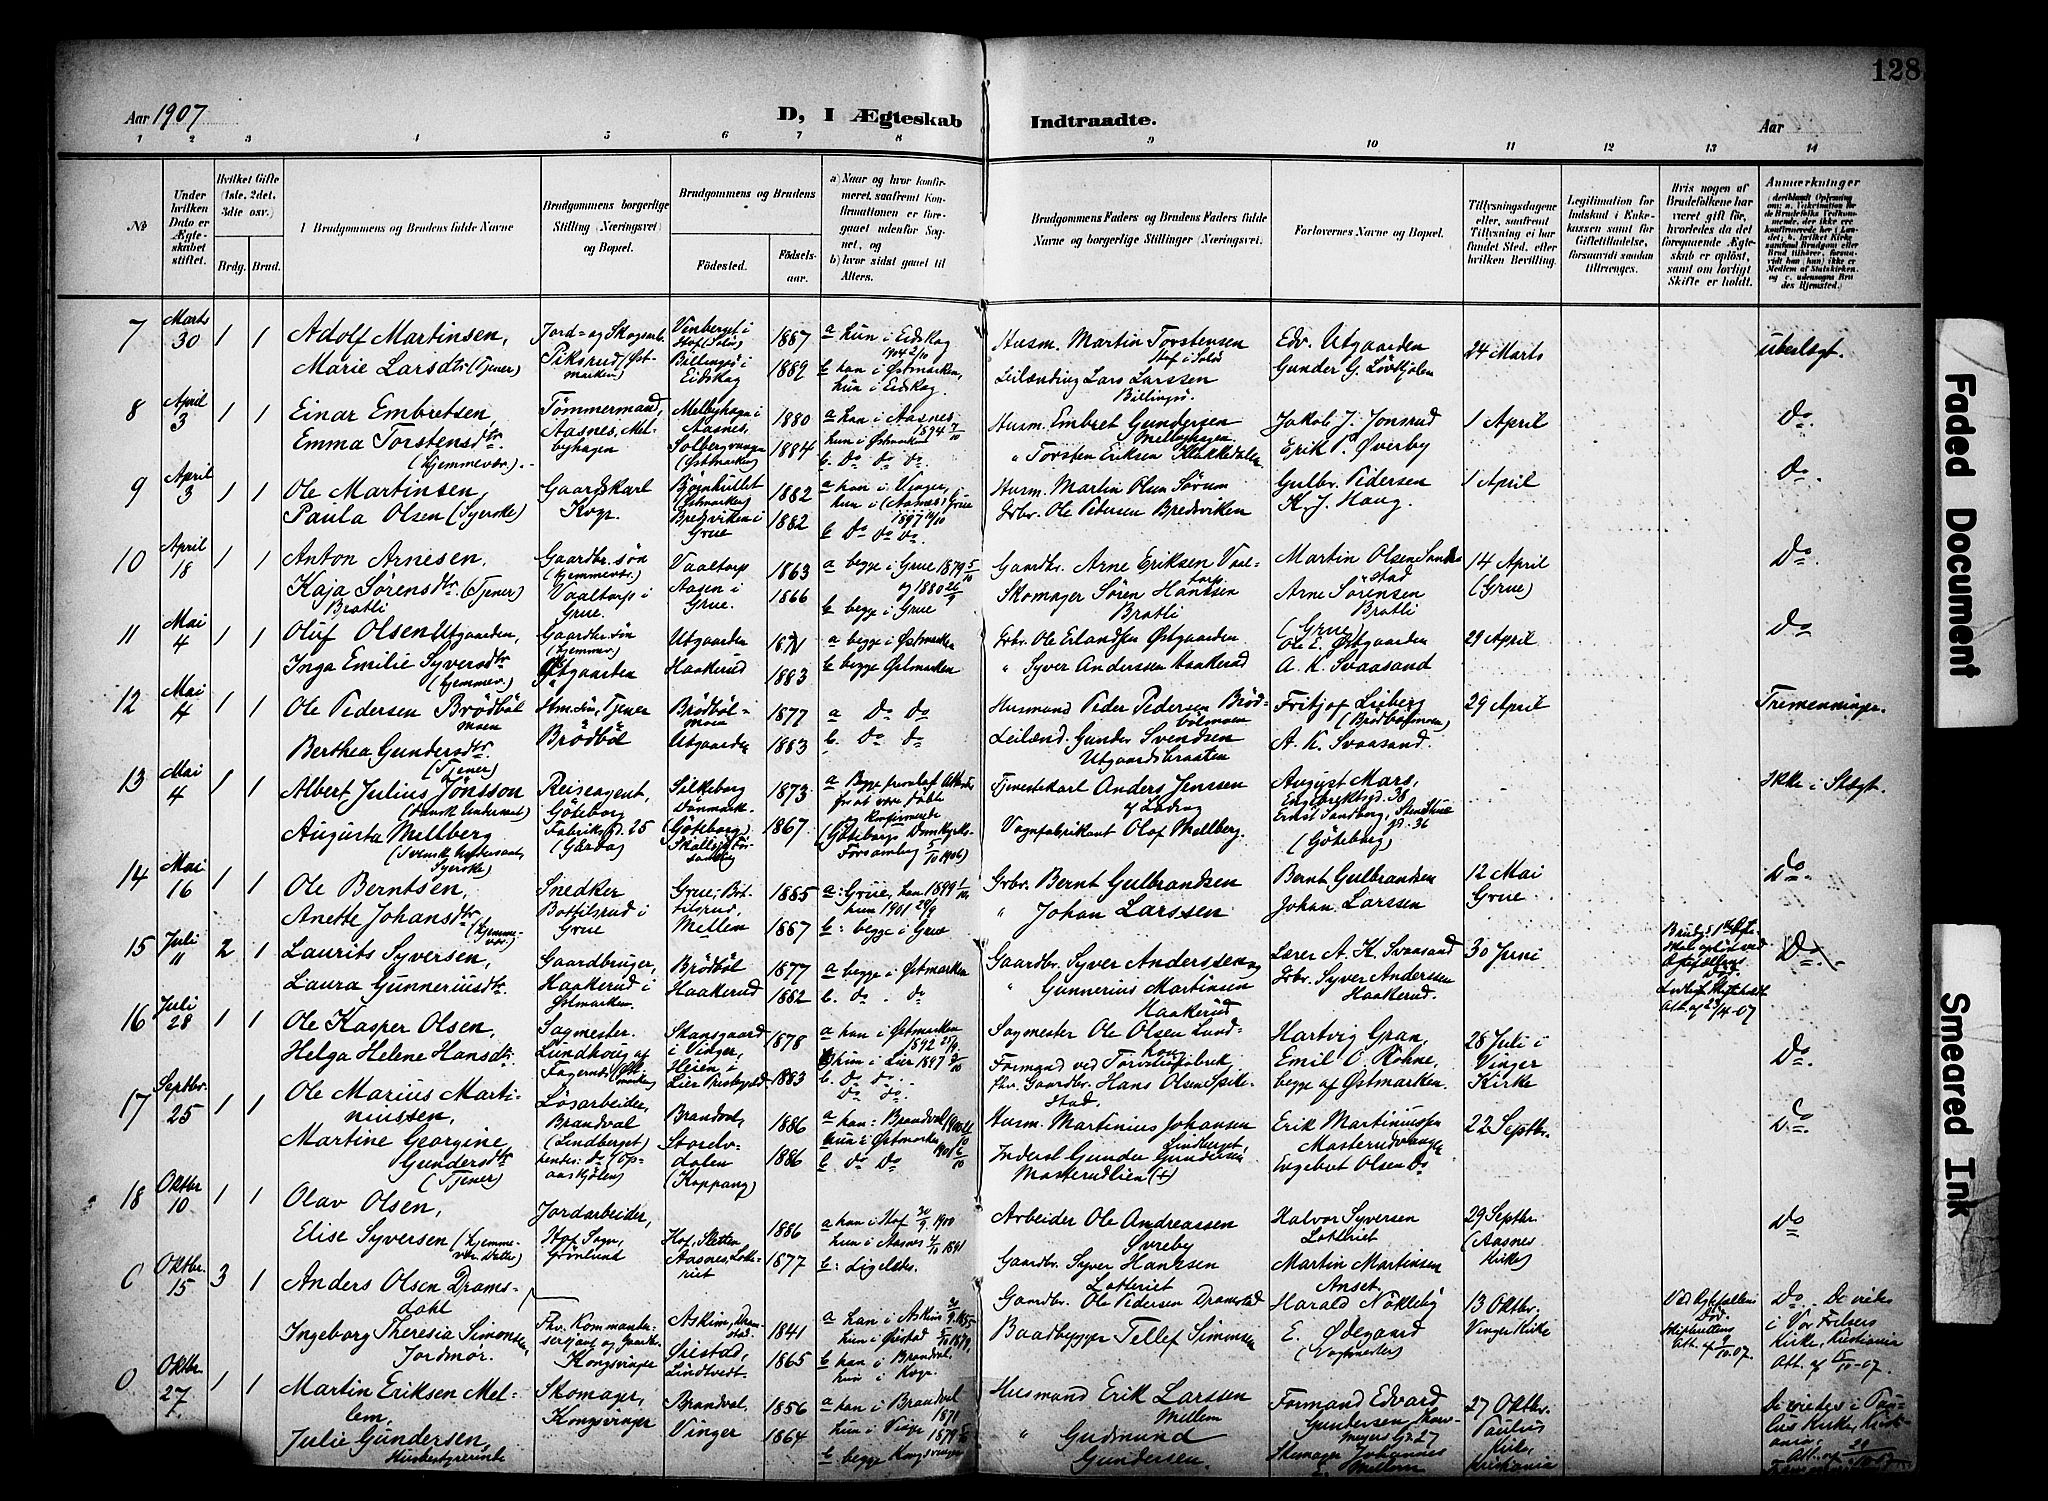 128
Aar 1907
D, I Ægteskab Indtraadte.
Aar
1 2 3 4 5 6 7 8 9 10 11 12 13 14
No
Under hvilken Dato er Ægteskabet stiftet.
Hvilket Gifte (1ste, 2det, 3die osv.)
Brdg. Brud.
Brudgommens og Brudens fulde Navne
Brudgommens borgerlige Stilling (Næringsvei) og Bopæl.
Brudgommens og Brudens
Födested.
Födselsaar.
a) Naar og hvor konfirmeret, saafremt Konfirmationen er foregaaet udenfor Sognet, og
b) hvor sidst gaaet til Alters.
Brudgommens Faders og Brudens Faders fulde Navne og borgerlige Stillinger (Næringsvei).
Forlovernes Navne og Bopæl.
Tillysningsdagene eller, saafremt Tillysning ei har fundet Sted, efter hvilken Bevilling.
Legitimation for Indskud i Enkekassen samt for Giftetilladelse, forsaavidt saadan tiltrænges.
Hvis nogen af Brudefolkene har været gift før, hvorledes da det foregaaende Ægteskab er oplöst, samt om lovligt Skifte er holdt.
Anmærkninger
7 Marts 30 1 1 Adolf Martinsen, Marie Larsdtr (Tjener)
Vinberget i Hof (Solör) 1887
Billingsö i Eidskog 1889
a hun i Eidskog 1904 2/10
b han i Østmarken, hun i Eidskog.
Husm. Martin Torstensen Hof i Solör
Leilænding Lars Larssen Billingsö
Edv. Utgaarden
Gunder G. Lövhjölen
24 Marts
ubeslægt.
8 April 3 1 1 Einar Embretsen, Emma Torstensdtr (hjemmevær.)
Tømmermand, Aasnes, Melbyhagen
Melbyhagen i Aasnes, 1880
Solbergvangen (Østmarken) 1884
a han i Aasnes 1894 7/10
hun i Østmarken
b. Do Do Do
Husm. Embret Gundersen Melbyhagen
" Torsten Eriksen Klakkedalen
Jakob J. Jonsrud
Erik P. Øverby
1 April
Do
9 April 3 1 1 Ole Martinsen, Paula Olsen (Syerske)
Gaardskarl Kvgr.
(Østmarken) 1882
Bredviken i Grue 1882
a han i Vinger, hun i (Aasnes) Grue 1897
b Do Do Do
Husm. Martin Olsen Sørum
Grbr. Ole Pedersen Bredviken
Gulbr. Pedersen
K. J. Haug
1 April
Do
10 April 18 1 1 Anton Arnesen, Kaja Sörensdtr (Tjener) Bratli
Gaardbr. sön (hjemmevær.) Vaaltorp i Grue.
Vaaltorp 1863
Aasen i Grue. 1866
a begge i Grue 1879 5/10 og 1880 26/9
b begge i Grue
Gaardbr. Arne Eriksen Vaaltorp
Skomager Sören Hansen Bratli
Martin Olsen Sandstad
Arne Sörensen Bratli (Grue)
14 April (Grue)
Do
11 Mai 4 1 1 Oluf Olsen Utgaarden, Inga Emilie Syversdtr (hjemmev.)
Gaardbr. sön (hjemmev.) Østgaarden
Utgaarden
Haakerud 1883
a begge i Østmarken
b begge Østmarken
Grbr. Ole Erlandsen Østgaarden
" Syver Anderssen Haakerud
Ole E. Østgaarden
A. K. Svaasand
29 April
Do
12 Mai 4 1 1 Ole Pedersen Brödbölmoen
Berthea Gundersdtr. (Tjener)
Hsm. sön, Tjener Brödböl
Brödbölmoen 1877
Utgaarden 1883
a Do Do
b. Do Do
Husmand Peder Pedersen Brödbölmoen
Leilænd. Gunder Svendsen Utgaardsbraaten
Fritjof Lieberg (Brödbölmoen)
A. K. Svaasand.
29 April
Tremenninger.
13 Mai 4 1 1 Albert Julius Jönsson (Dansk Undersaat)
Augusta Mellberg (Svensk Undersaat, Syerske)
Reiseagent, Göteborg Fabriksgd. 25
Silkeborg Danmark. 1873
(Göteborg) 1867
a Begge
(Göteborgs Domkyrkoförsamling 5/10 1906)
Tjenestekarl Anders Jenssen
Vognfabrikant Olof Mellberg.
August Mars, Engelbrektsgd. 38
Ernst Sandberg, 36 (Göteborg)
Ikke i Slægt.
14 Mai 16 1 1 Ole Berntsen, Anette Johansdtr (hjemmevær.)
Snedker Bottilsrud i Grue
Grue, Bottilsrud, 1885
Mellem 1887
a: Grue, han 1899 1/10 hun 1901 29/9
b: begge i Grue
Grbr. Bernt Gulbrandsen
" Johan Larssen
Bernt Gulbrandsen
Johan Larssen
12 Mai Grue
Do
15 Juli 11 2 1 Laurits Syversen, Laura Gunneriusdtr.
Gaardbruger, Haakerud i Østmarken.
Brödböl 1877
Haakerud 1882
a begge i Østmarken
b. do. do
Gaardbr. Syver Anderssen
" Gunnerius Martinsen Haakerud
Lærer A. K. Svaasand
Grbr. Syver Anderssen Haakerud.
30 Juni
Do
16 Juli 28 1 1 Ole Kasper Olsen, Helga Helene Hansdtr.
Sagmester. Lundhoug af Fagernes (Østmarken)
Skansgaard i Vinger, 1878
Heien, i Lier Prestegjeld 1883
a han i Østmarken 1892 25/9
hun i Lier 1897 3/10
b. Do do.
Sagmester Ole Olsen Lundhoug
Formand ved Torvströfabrik fhv. Gaardbr. Hans Olsen Spikestad.
Hartvig Gran,
Emil O. Röhne, begge af Østmarken.
28 Juli i Vinger Kirke
Do
17 Septbr. 25 1 1 Ole Marius Martiniussen,
Martine Georgine Gundersdtr (Tjener)
Løsarbeider, Brandval (Lindberget)
Brandval, 1886
Storelvdalen (Koppang) 1886
a han: Brandval
hun: Østmarken 1901 6/10
b Do Do
Husm. Martinius Johansen Lindberget,
Inderst Gunder Gundersen Masterudlien (+)
Erik Martiniussen Masterudvangen
Engebret Olsen Do
22 Septbr.
Do
18 Oktbr. 10 1 1 Olav Olsen,
Elise Syversen (hjemmevær. Datter)
Jordarbeider, Hof Sogn, Grönlund
Hof, Sletten 1886
Aasnes, Lotteriet 1877
a han i Hof 30/9 1900
hun i Aasnes 4/10 1891
b: Ligeledes.
Arbeider Ole Andreassen Svreby
Gaardbr. Syver Hanssen Lotteriet
Halvor Syversen Lotteriet
Martin Martinsen Anset
29 Septbr (Aasnes Kirke)
Do
Oktbr. 15 3 1 Anders Olsen Dramsdahl
Ingeborg Theresia Simonsen, Jordmor.
Fhv. Kommandersergeant og Gaardbr. Kongsvinger
Askim, Dramstad. 1841
Øiestad, Lindtveit 1865
a han i Askim
hun i Øiestad 5/10 1879,
b han i Brandval, hun i Kvgr.
Gaardbr. Ole Pedersen Dramstad
Baadbygger Tellef Simonsen
Harald Nökleby
E. Ødegaard (Vagtmester)
13 Oktbr. Vinger Kirke
Ved Ægtefællens Död
Skifterettens Att. af 9/10-07.
Do. De viedes i Vor Frelsers Kirke, Kristiania Att. af 15/10-07.
0 Oktbr. 27 1 1 Martin Eriksen Mellem,
Julie Gundersen, Husbestyrerinde
Skomager, Kongsvinger
Brandval, 1856
Vinger 1864
a han i Brandval 1871
hun i Vinger 1879
b begge Kongsvinger
Husmand Erik Larssen Mellem
" Gudmund Gundersen.
Formand Edvard Gundersen
Skomager Johannes E. Mellem
27 Oktbr. Paulus Kirke, Kristiania
De viedes i Paulus Kirke, Kristiania,
Faded Document
Smeared Ink